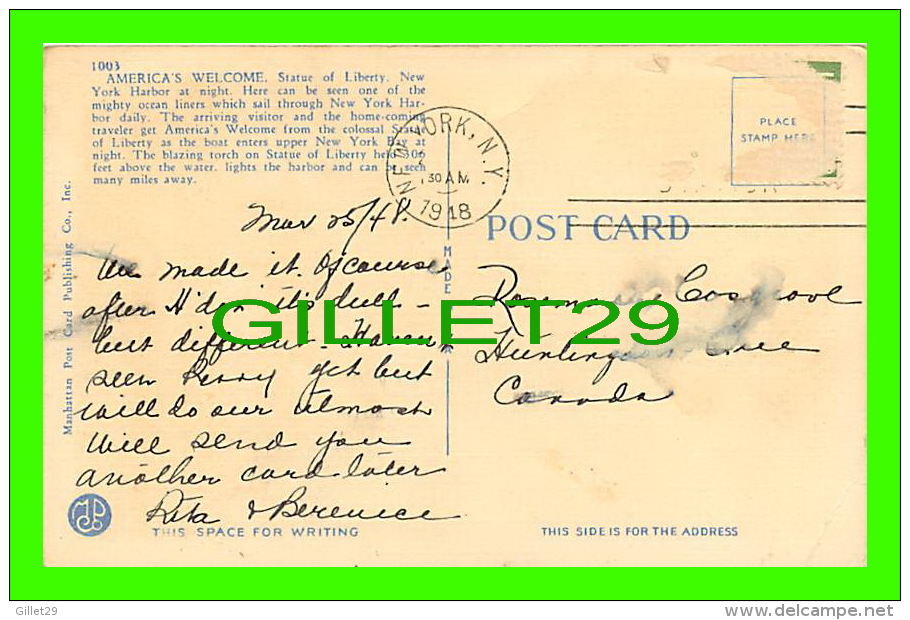 1003
AMERICA'S WELCOME. Statue of Liberty. New
York Harbor at night. Here can be seen one of the
mighty ocean liners which sail through New York Har-
bor daily. The arriving visitor and the home-coming
traveler get America's Welcome from the colossal Statue
of Liberty as the boat enters upper New York Bay at
night. The blazing torch on Statue of Liberty held 306
feet above the water, lights the harbor and can be seen
many miles away.
NEW YORK, N.Y.
30 AM
1948
PLACE
STAMP HERE
Mar 25/48.
We made it. Of course
after H'don it's dull -
but different. Haven't
seen Perry yet but
will do our utmost
Will send you
another card later
Rita & Berenice
THIS SPACE FOR WRITING
Manhattan Post Card Publishing Co., Inc.
MADE
POST CARD
Rosemarie Cosgrove
Huntingdon Que
Canada
THIS SIDE IS FOR THE ADDRESS
GILLET29
Gillet29
www.delcampe.net